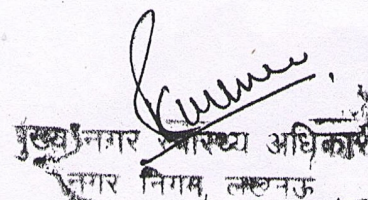 मुख्य नगर स्वास्थ्य अधिकारी
नगर निगम, लखनऊ